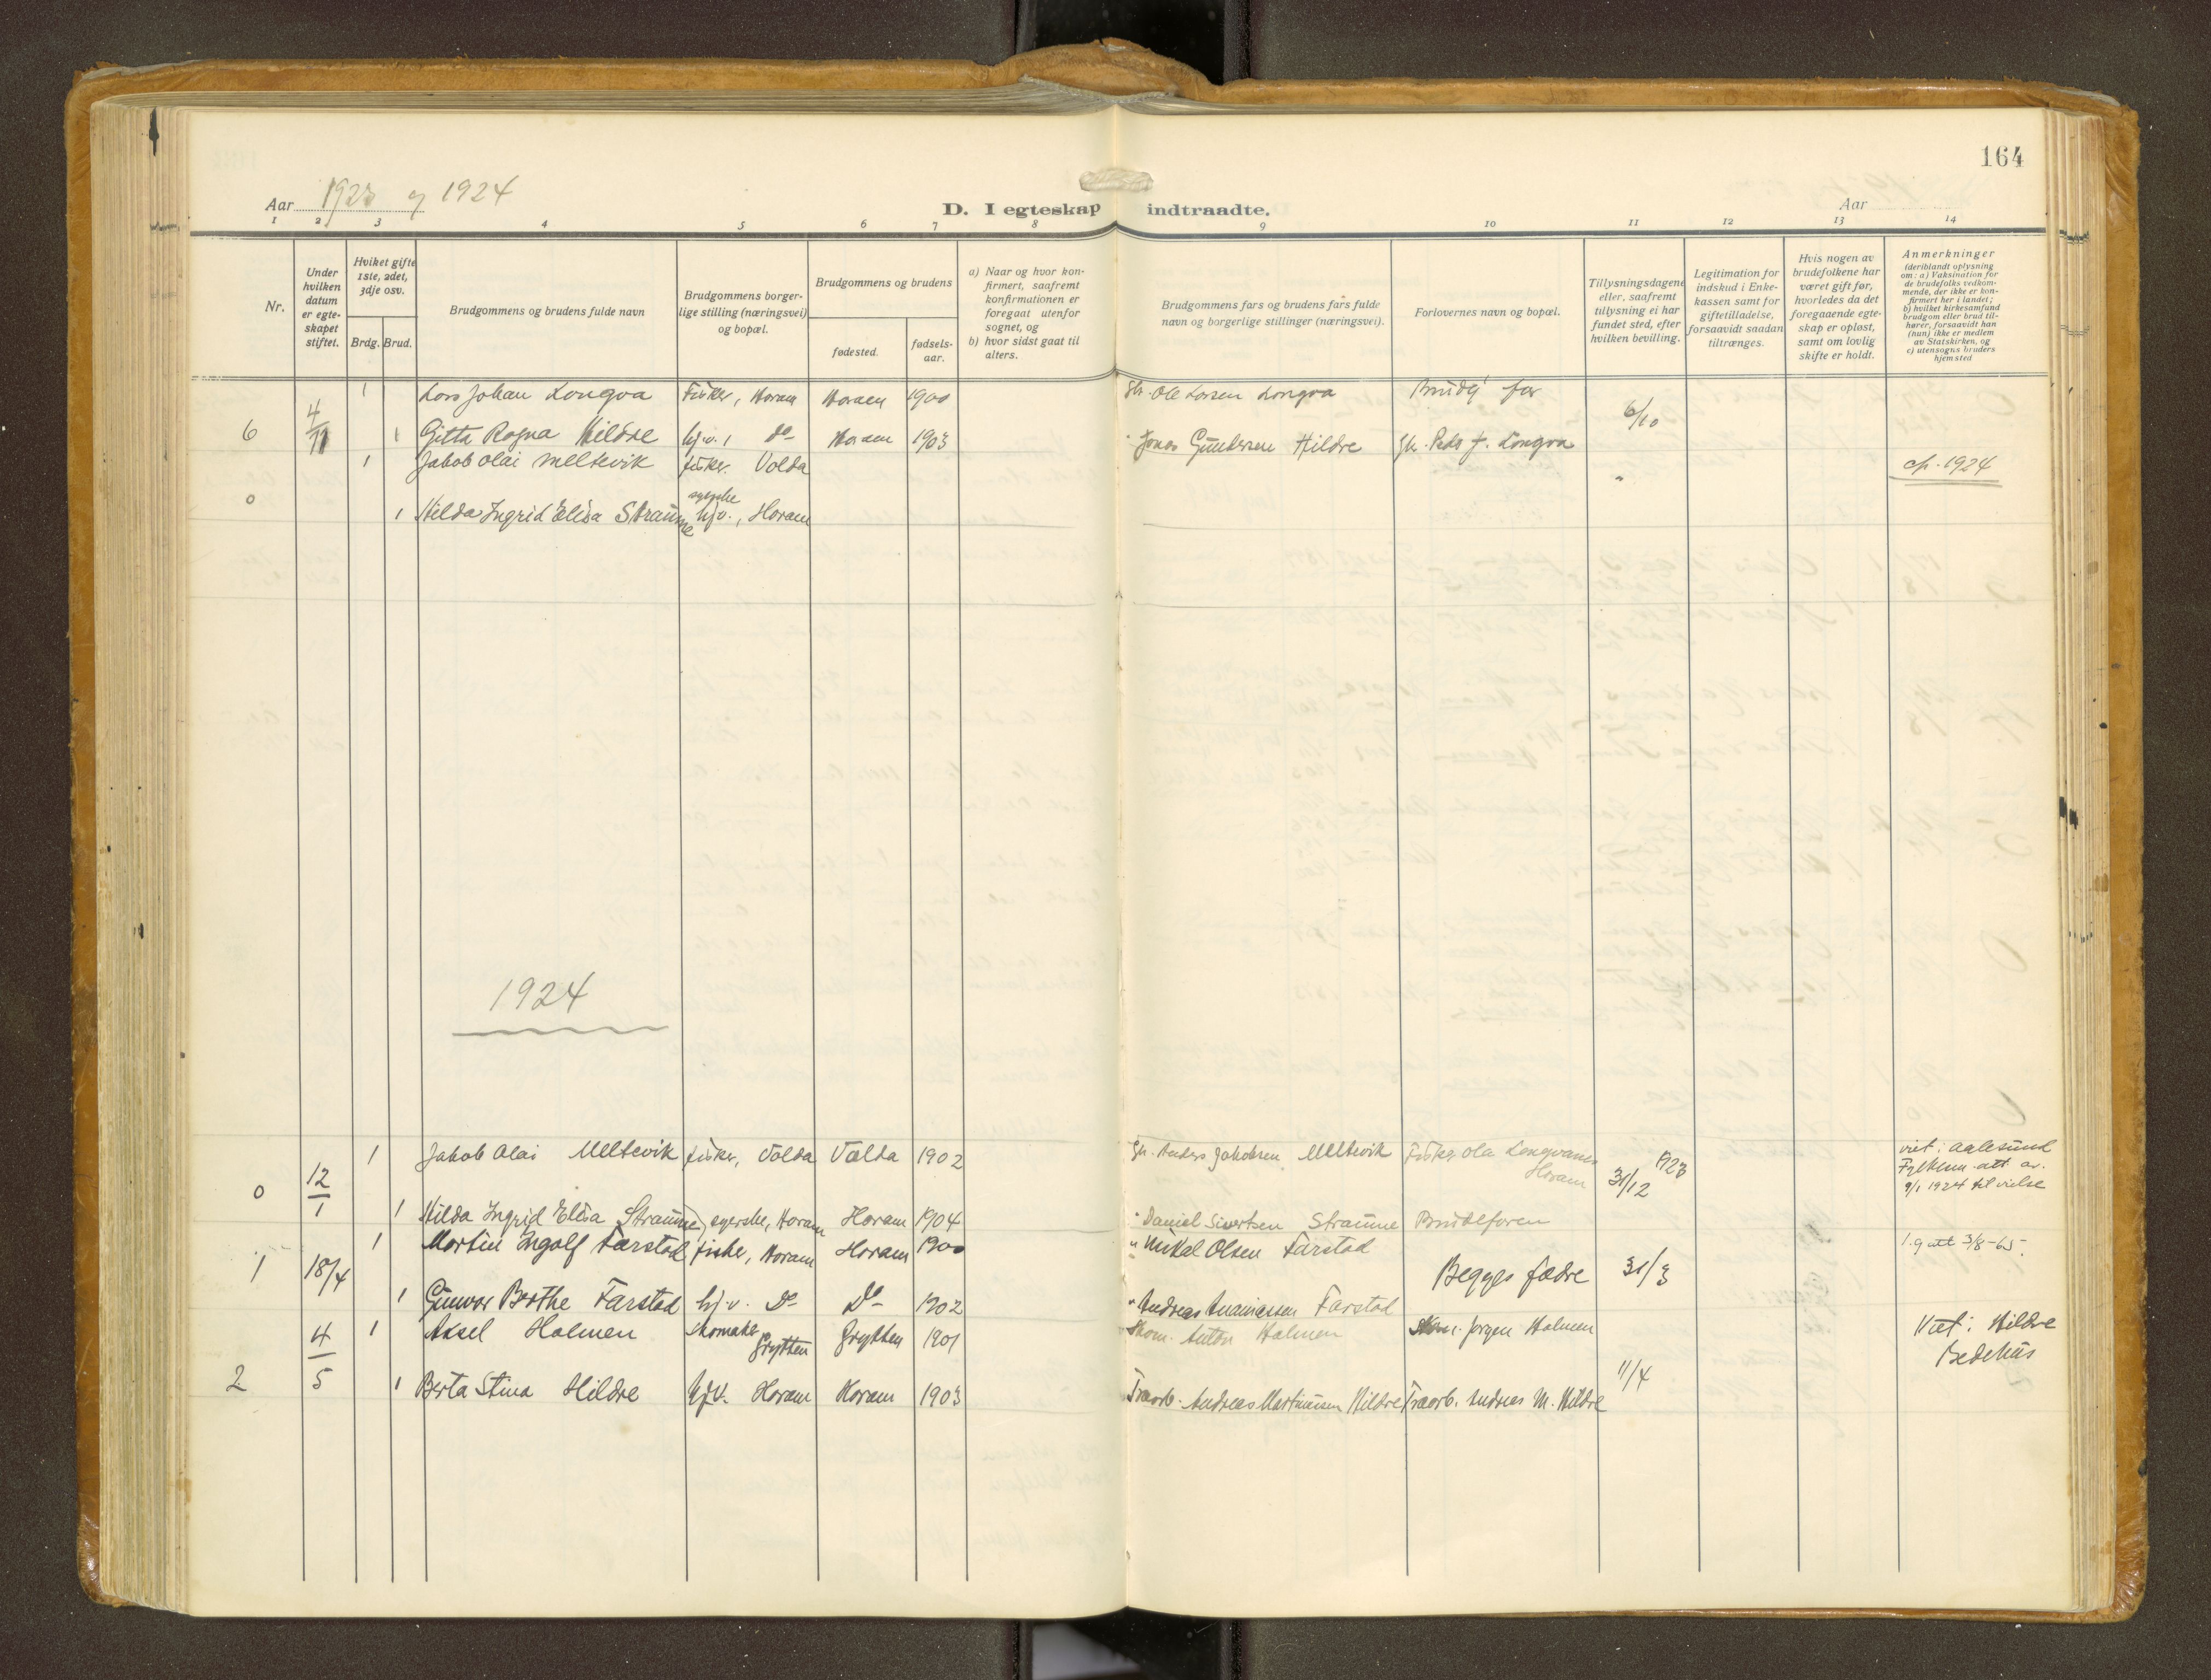 164
Aar 1923 og 1924
D. I egteskap indtraadte.
Aar
1 2 3 4 5 6 7 8 9 10 11 12 13 14
Nr.
Under hvilken datum er egte-skapet stiftet.
Hviket gifte 1ste, 2det, 3dje osv.
Brdg. Brud.
Brudgommens og brudens fulde navn
Brudgommens borger-lige stilling (næringsvei) og bopæl.
Brudgommens og brudens
fødested.
fødsels-aar.
a) Naar og hvor kon-firmert, saafremt konfirmationen er foregaat utenfor sognet, og
b) hvor sidst gaat til alters.
Brudgommens fars og brudens fars fulde navn og borgerlige stillinger (næringsvei).
Forlovernes navn og bopæl.
Tillysningsdagene eller, saafremt tillysning ei har fundet sted, efter hvilken bevilling.
Legitimation for indskud i Enke-kassen samt for giftetilladelse, forsaavidt saadan tiltrænges.
Hvis nogen av brudefolkene har været gift før, hvorledes da det foregaaende egte-skap er opløst, samt om lovlig skifte er holdt.
Anmerkninger (deriblandt oplysning om: a) Vaksination for de brudefolks vedkom-mende, der ikke er kon-firmert her i landet; b) hvilket kirkesamfund brudgom eller brud til-hører, forsaavidt han (hun) ikke er medlem av Statskirken, og c) utensogns bruders hjemsted
1 Lars Johan Longva Fisker, Haram Haram 1900 Gbr. Ole Larsen Longva Brudg' far
6 4/11 6/10
1 Gitta Ragna Hildre hj.v., do Haram 1903 " Jonas Gundersen Hildre Gbr. Peder J. Longva
1 Jakob Olai Meltevik fisker. Volda " cfr. 1924
0
1 Hilda Ingrid Elisa Straume syerske hj.v., Haram
1924
1 Jakob Olai Meltevik fisker, Volda Volda 1902 Gbr. Anders Jakobsen Meltevik Fisker Ola Longvanes Haram
0 12/1 31/12 1923
viet i Aalesund
Fylkesm. att av.
9/1 1924 til vielse
1 Hilda Ingrid Elisa Straume, syerske, Haram Haram 1904 " Daniel Sivertsen Straume Brudefaren
1 Martin Ingolf Farstad fisker, Haram Haram 1900 " Mikal Olsen Farstad 1.g att 3/8-65.
1 18/4 Begges fædre 31/3
1 Gunvor Berthe Farstad hj.v. do do 1902 " Andreas Ananiassen Farstad
1 Aksel Holmen skomaker Grytten Grytten 1901 Skom. Anton Holmen Skom. Jørgen Holmen
2 4/5 11/4
Viet i Hildre
Bedehus
1 Berta Stina Hildre hj.v. Haram Haram 1903 Fraarb. Andreas Martinusen Hildre Fraarb. Andreas M. Hildre